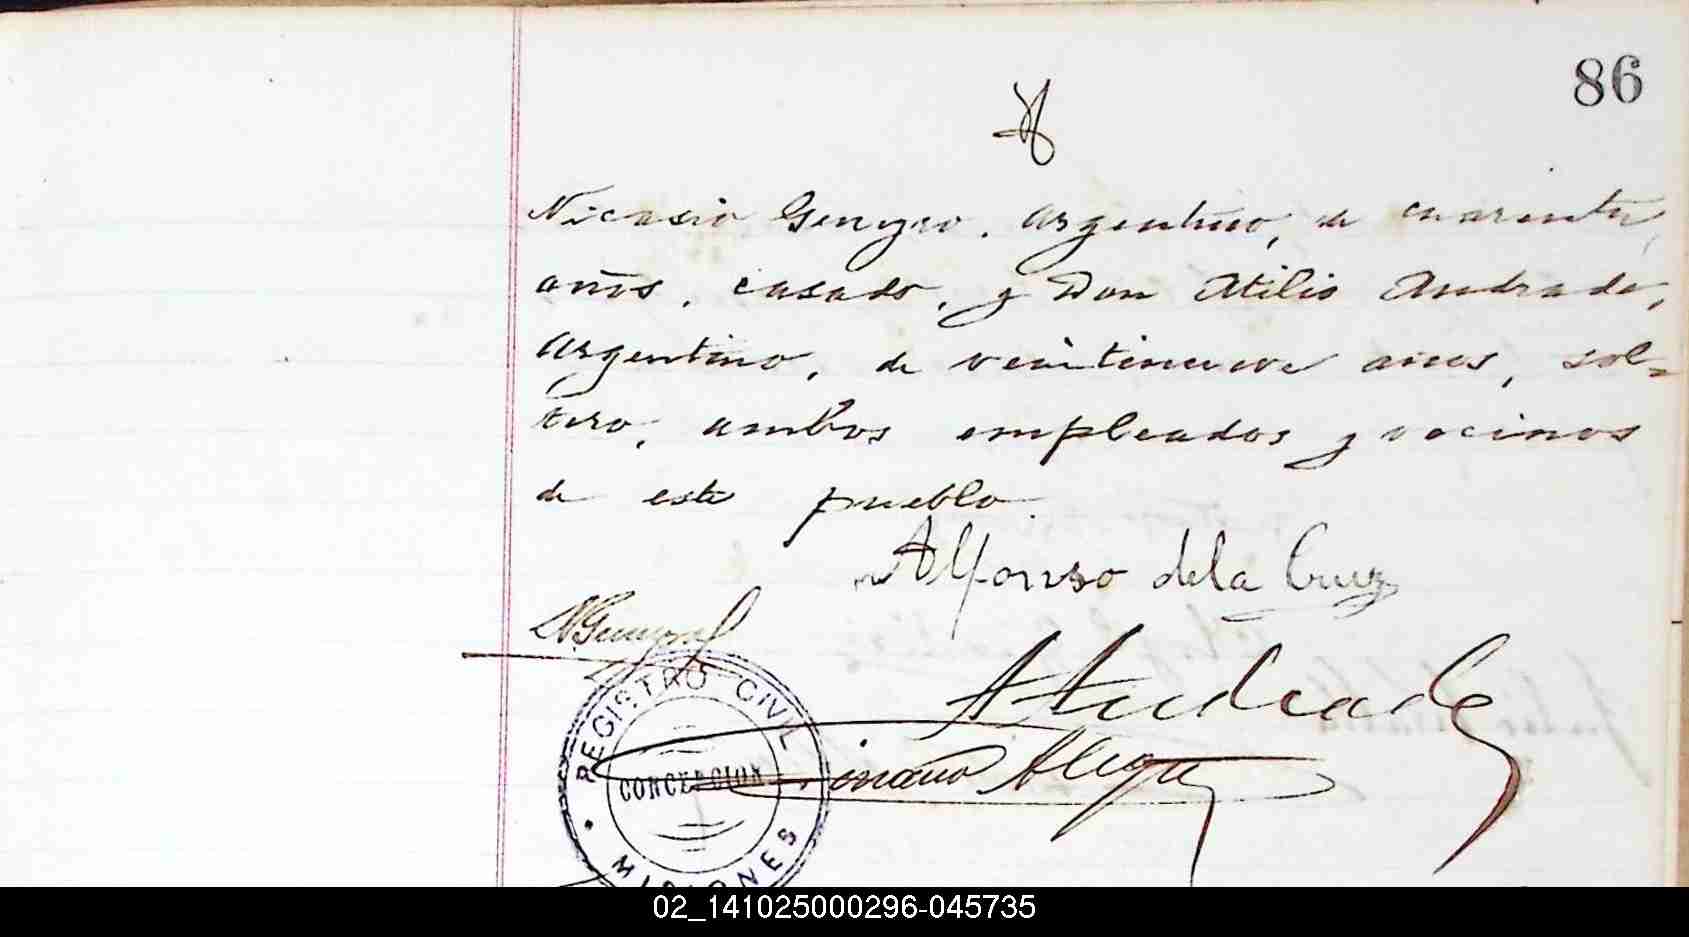 86
Nicasio Genyro, argentino, de cuarenta
años, casado, y Don Atilio Andrade,
argentino, de veintinueve años, sol-
tero, ambos empleados y vecinos
de este pueblo.
Alfonso de la Cruz
A Andrade
Alegre
REGISTRO CIVIL
CONCEPCION
MISIONES
02_141025000296-045735